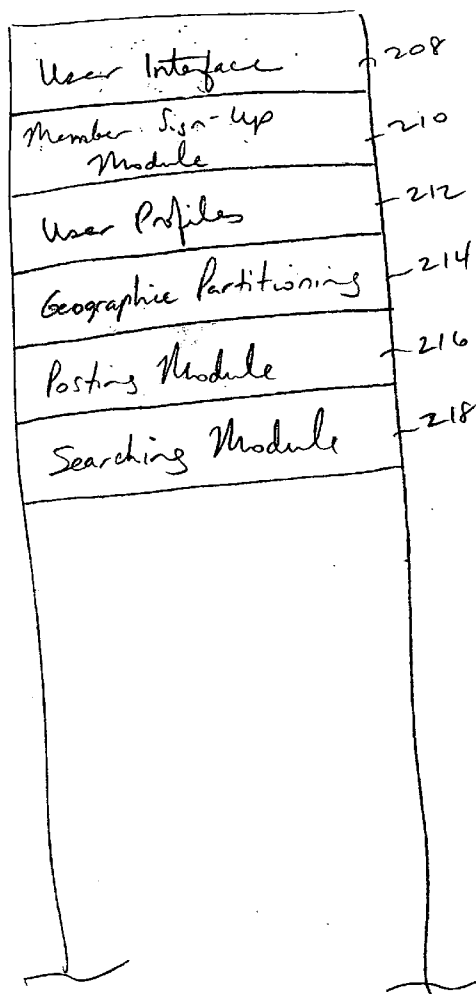 User Interface 208
Member Sign-Up 210
Module
User Profiles 212
Geographic Partitioning 214
Posting Module 216
Searching Module 218